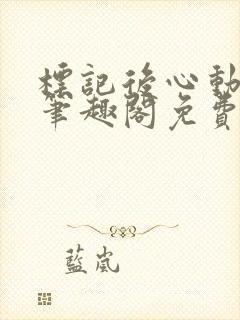 標記後心動
筆趣閣免費
藍嵐